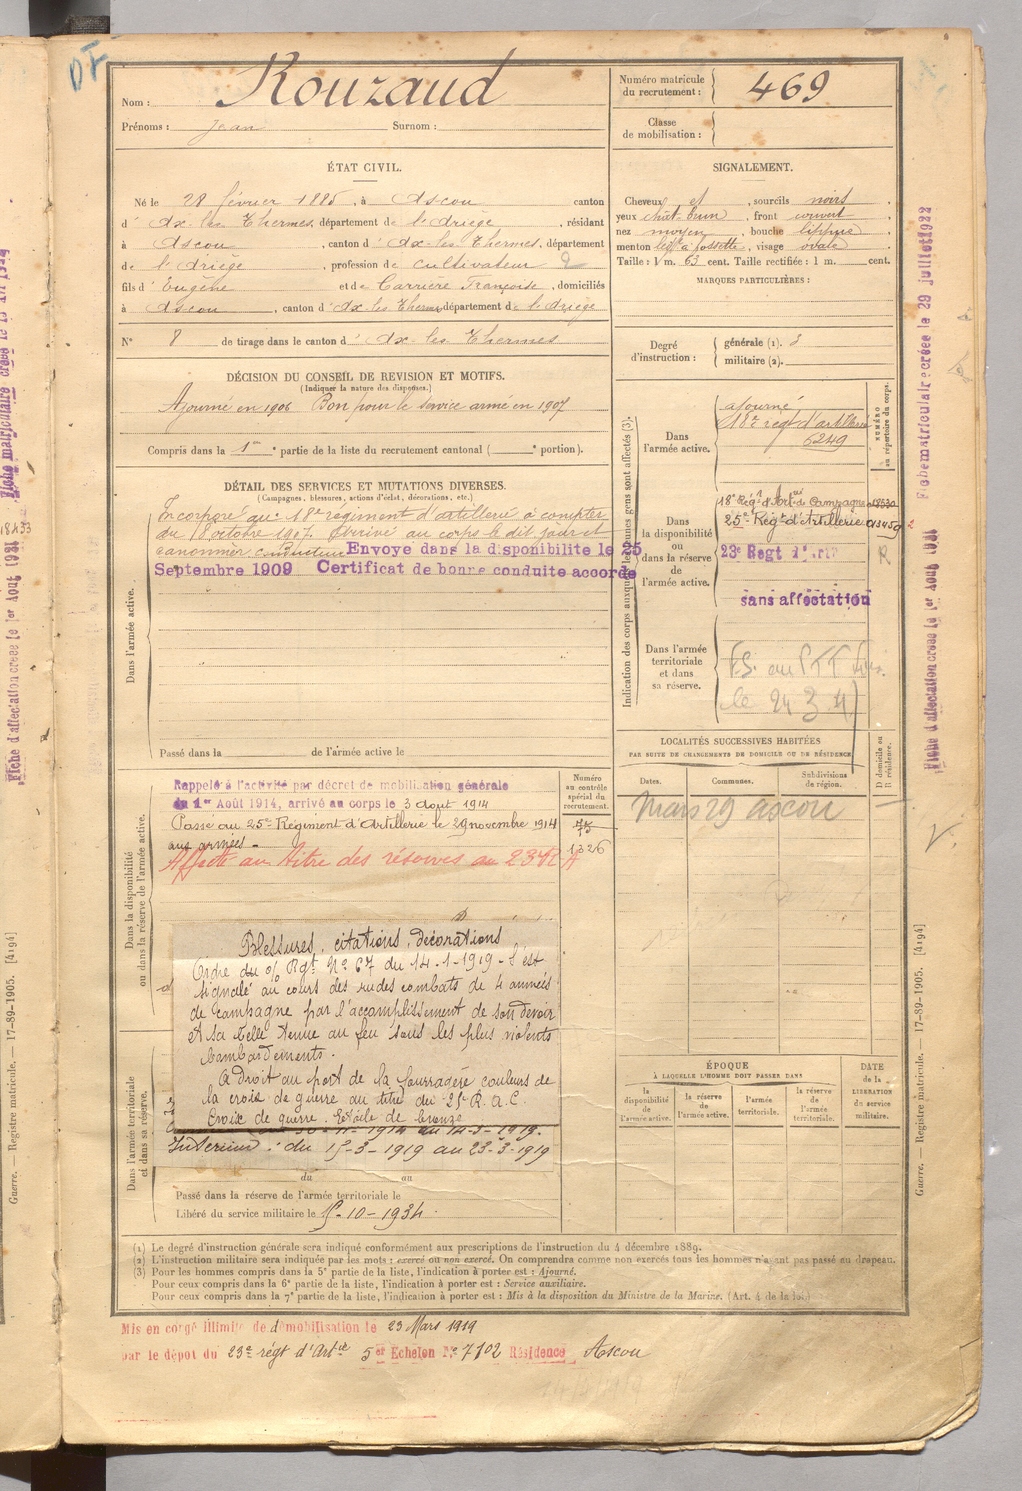 DF
Nom : Rouzaud
Prénoms : Jean Surnom :
Numéro matricule du recrutement : 469
Classe de mobilisation :
ÉTAT CIVIL.
Né le 28 février 1885, à Ascou canton
d' Ax-les-Thermes, département de l'Ariège, résidant
à Ascou, canton d' Ax-les-Thermes, département
de l'Ariège, profession de cultivateur 2
fils d' Eugène et de Carrière Françoise, domiciliés
à Ascou, canton d' Ax-les-Thermes, département de l'Ariège
N° 8 de tirage dans le canton d' Ax-les-Thermes
SIGNALEMENT.
Cheveux et , sourcils noirs
yeux chât-brun, front couvert
nez moyen, bouche lippue
menton à fossette, visage ovale
Taille : 1 m. 63 cent. Taille rectifiée : 1 m. cent.
MARQUES PARTICULIÈRES :
Degré d'instruction : générale (1). 3
militaire (2).
DÉCISION DU CONSEIL DE REVISION ET MOTIFS.
(Indiquer la nature des dispenses.)
Ajourné en 1906 Bon pour le service armé en 1907
Compris dans la 1re partie de la liste du recrutement cantonal ( e portion).
DÉTAIL DES SERVICES ET MUTATIONS DIVERSES.
(Campagnes, blessures, actions d'éclat, décorations, etc.)
Dans l'armée active.
Incorporé au 18e régiment d'artillerie à compter
du 8 octobre 1907. Arrivé au corps le dit jour et
canonnier conducteur Envoyé dans la disponibilité le 25
Septembre 1909 Certificat de bonne conduite accordé
Passé dans la de l'armée active le
Indication des corps auxquels les jeunes gens sont affectés (3).
NUMÉRO au répertoire du corps.
Dans l'armée active.
ajourné
18e régt d'artillerie
6249
Dans la disponibilité ou dans la réserve de l'armée active.
18e Régt d'Artie de Campagne
25e Régt d'Artillerie
23e Regt d'Art
sans affectation
R
Dans l'armée territoriale et dans sa réserve.
F.S. au PTT
le 24 3 41
LOCALITÉS SUCCESSIVES HABITÉES
PAR SUITE DE CHANGEMENTS DE DOMICILE OU DE RÉSIDENCE
Dates. Communes. Subdivisions de région. D domicile ou R résidence.
Mars 29 ascou
Dans la disponibilité ou dans la réserve de l'armée active.
Numéro au contrôle spécial du recrutement.
75
1326
Rappelé à l'activité par décret de mobilisation générale
du 1er Août 1914, arrivé au corps le 3 aout 1914
Passé au 25e Régiment d'Artillerie le 29 novembre 1914
aux armées -
Affecté au titre des réserves au 23e R A
Blessures, citations, décorations
Ordre du Rgt N° 67 du 14-1-1919 - S'est
signalé au cours des rudes combats de 4 années
de campagne par l'accomplissement de son devoir
et sa belle tenue au feu sous les plus violents
bombardements.
A droit au port de la fourragère couleurs de
la croix de guerre au titre du 25e R.A.C.
Croix de guerre. Etoile de bronze
1914 au 14-3-1919.
Intérieur : du 15-3-1919 au 23-3-1919
Dans l'armée territoriale et dans sa réserve.
du au
Passé dans la réserve de l'armée territoriale le
Libéré du service militaire le 15-10-1934.
ÉPOQUE
À LAQUELLE L'HOMME DOIT PASSER DANS
la disponibilité de l'armée active. la réserve de l'armée active. l'armée territoriale. la réserve de l'armée territoriale.
DATE de la LIBÉRATION du service militaire.
(1) Le degré d'instruction générale sera indiqué conformément aux prescriptions de l'instruction du 4 décembre 1889.
(2) L'instruction militaire sera indiquée par les mots : exercé ou non exercé. On comprendra comme non exercés tous les hommes n'ayant pas passé au drapeau.
(3) Pour les hommes compris dans la 5e partie de la liste, l'indication à porter est : Ajourné.
Pour ceux compris dans la 6e partie de la liste, l'indication à porter est : Service auxiliaire.
Pour ceux compris dans la 7e partie de la liste, l'indication à porter est : Mis à la disposition du Ministre de la Marine. (Art. 4 de la loi.)
Mis en congé illimité de démobilisation le 23 Mars 1919
par le dépôt du 23e régt d'Artie 5er Echelon N° 7102 Résidence Ascou
Fiche matriculaire créée le 29 juillet 1922
Fiche d'affectation créée le 1er Août 1931
Guerre. — Registre matricule. — 17-89-1905. [4194]
Fiche d'affectation créée le 1er Août 1931
Guerre. — Registre matricule. — 17-89-1905. [4194]